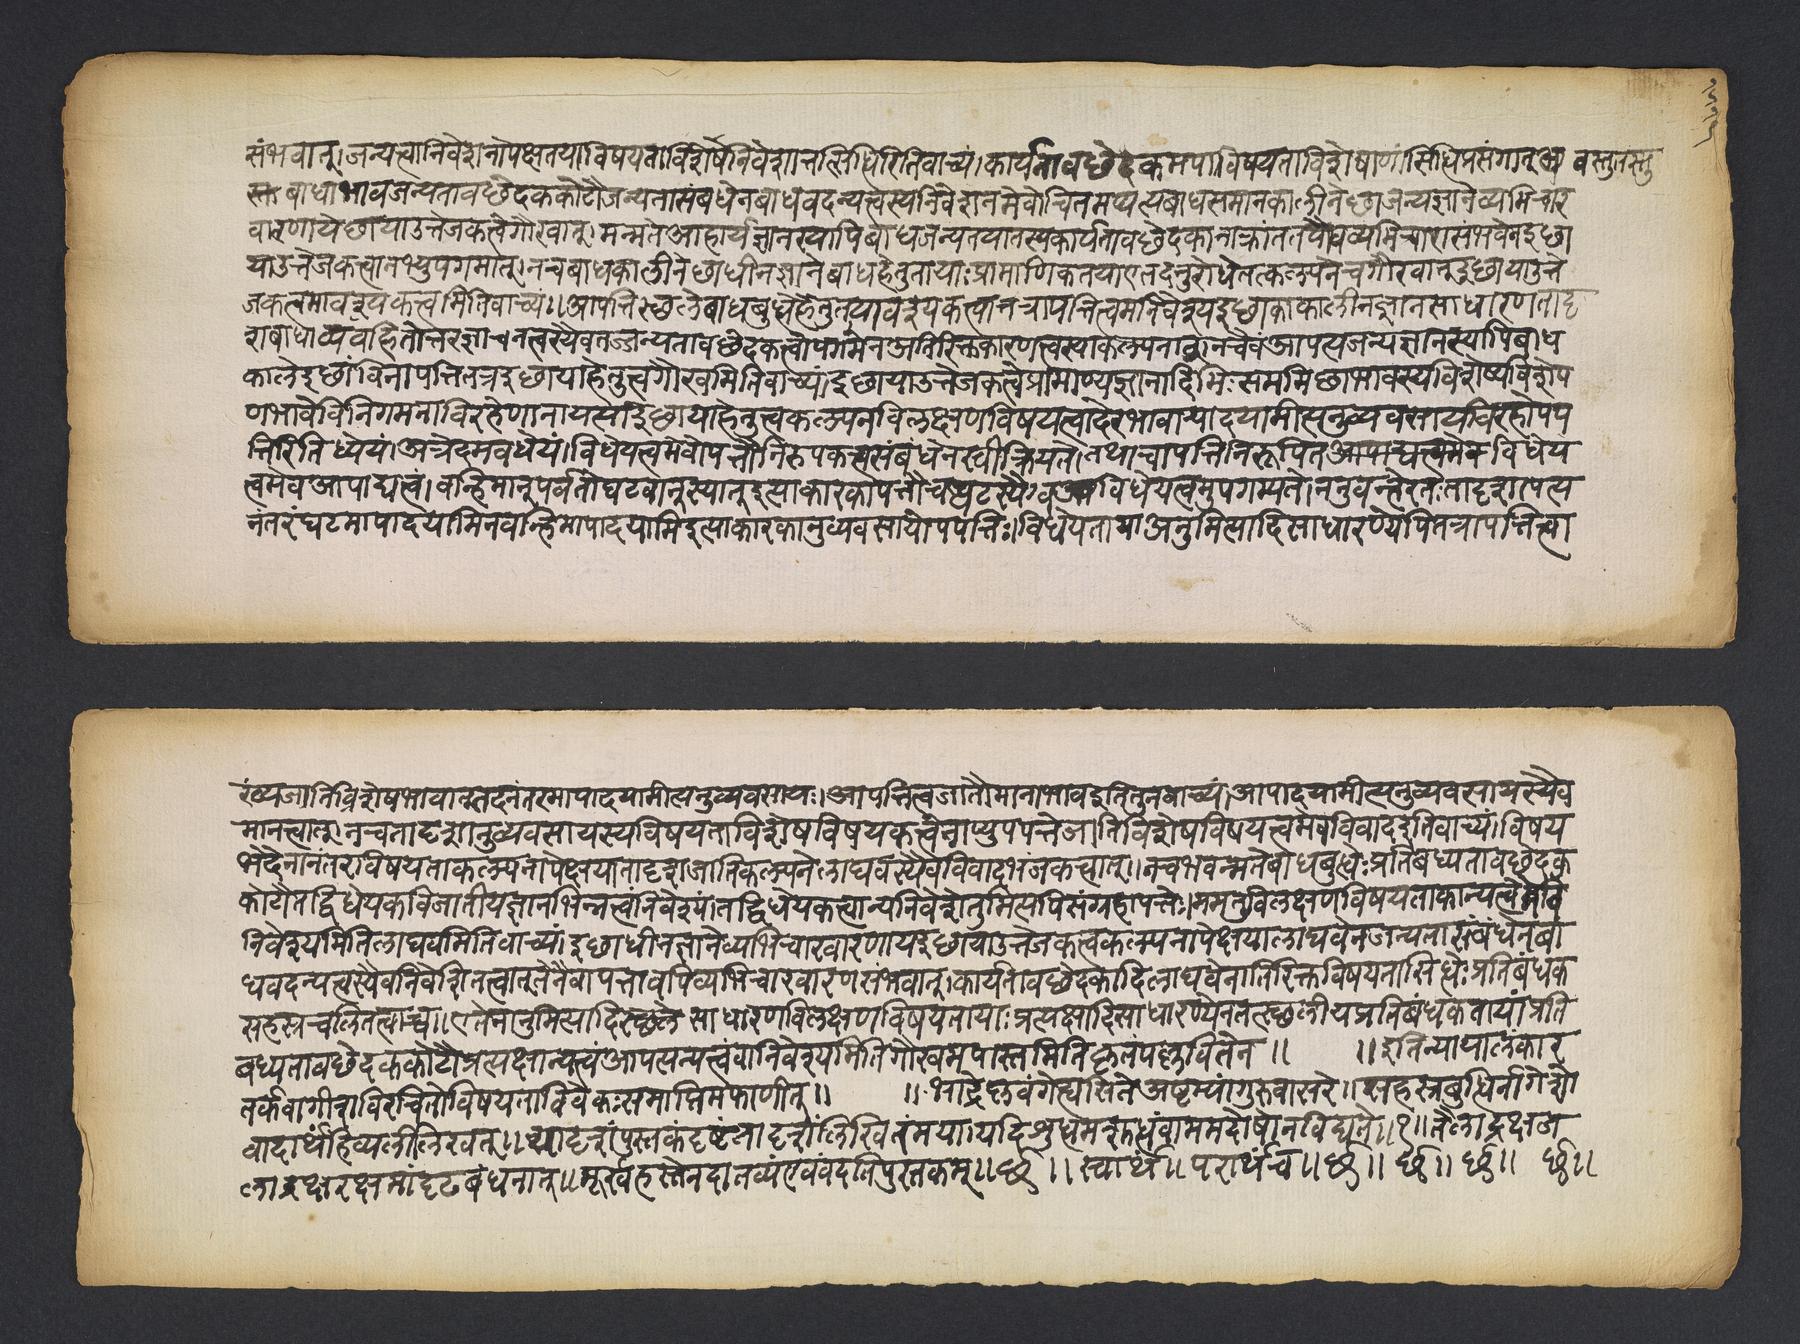 संभवात्।जन्यत्वानिवेशेनोपक्षतयाविषयताविशेषनिवेशात्तत्सिद्धिरितिवाच्यं।कार्यतावछेदकमपाविषयताविशेषाणांसिद्धिप्रसंगात् वस्तुतस्तु
बाधाभावजन्यतावछेदककोटौजन्यतासंबंधेनबाधवदन्यत्वस्यनिवेशनमेवोचितमप्यत्यबाधसमानकालीनेछाजन्यज्ञानेव्यभिचार
वारणायेछायाउत्तेजकत्वेगौरवात्।मन्मतेआहार्यज्ञानस्यापिबाधजन्यतयातस्यकार्यतावछेदकानाक्रांततयैवव्यभिचारासंभवेनइछा
याउत्तेजकत्वानभ्युपगमात्।नचबाधकालीनेछाधीनज्ञानेबाधहेतुतायाःप्रामाणिकतयाएतदनुरोधेनतत्कल्पनेचगौरवात्इछायाउत्ते
जकत्वमावश्यकत्वमितिवाच्यं॥आपत्तिस्थलेबाधबुद्धेर्हेतुतयावश्यकत्वात्तत्रापत्तित्वमनिवेश्यइछाकालीनज्ञानसाधारणतादृ
शबाधाव्यवहितोत्तरज्ञानत्वस्यैवतज्जन्यतावछेदकत्वोपगमेनअतिरिक्तकारणत्वस्याकल्पनात्।नचैवंआपत्यजन्यज्ञानस्यापिबाध
कालेइछांविनापत्तितत्रइछायाहेतुत्वगौरवमितिवाच्यं।इछायाउत्तेजकत्वेप्रामाण्यज्ञानादिभिःसममिछाभावस्यविशेष्यविशेष
णभावेविनिगमनाविरहेणानायत्याइछायाहेतुत्वकल्पनविलक्षणविषयत्वादेरभावान्नापादयामीत्यनुव्यवसायविरहोपप
त्तिरितिध्येयं।अत्रेदमवधेयं।विधेयत्वमेवोपत्तौनिरूपकत्वसंबंधेनस्वीक्रियते।तथाचापत्तिनिरूपितआपाद्यत्वमेवविधेय
त्वमेवआपाद्यत्वं।वन्हिमान्पर्वतोघटवान्स्यात्इत्याकारकापत्तौचघटस्यैवविधेयत्वमुपगम्यते।नतुवन्हेरतःतादृशापत्य
नंतरंघटमापादयामिनवन्हिमापादयामिइत्याकारकानुव्यवसायोपपत्तिः।विधेयतायाअनुमित्यादिसाधारण्येपितत्रापत्तित्वा
ख्यजातिविशेषभावात्तदनंतरमापादयामीत्यनुव्यवसायः।आपत्तित्वजातौमानाभावइतितुनवाच्यं।आपादयामीत्यनुव्यवसायस्यैव
मानत्वात्।नचतादृशानुव्यवसायस्यविषयताविशेषविषयकत्वेनाप्युपपत्तेजातिविशेषविषयत्वमेवविवादइतिवाच्यं।विषय
भेदेनानंतरविषयताकल्पनापेक्षयातादृशजातिकल्पनेलाघवस्यैवविवादभंजकत्वात्॥नचभवन्मतेबाधबुद्धेःप्रतिबध्यतावछेदक
कोटौतद्विधेयकविजातीयज्ञानभिन्नत्वंनिवेश्यं।तद्विधेयकत्वान्यनिवेशेतुमित्यपिसंग्रहापत्तेः।ममतुविलक्षणविषयताकान्यत्वमेव
निवेश्यमितिलाघवमितिवाच्यं।इछाधीनज्ञानेव्यभिचारवारणायइछायाउत्तेजकत्वकल्पनापेक्षयालाघवेनजन्यतासंबंधेनबा
धवदन्यत्वस्यैवनिवेशितत्वात्तेनैवापत्तावपिव्यभिचारवारणसंभवात्।कार्यतावछेदकादिलाघवेनातिरिक्तविषयतासिद्धेःप्रतिबंधक
सहस्रचलितत्वाच्च॥एतेनानुमित्यादिस्थलसाधारणविलक्षणविषयतायाःप्रत्यक्षादिसाधारण्येनतत्स्थलीयप्रतिबंधकतायांप्रति
बध्यतावछेदककोटौप्रत्यक्षान्यत्वंआपत्यन्यत्वंवानिवेश्यमितिगौरवमपास्तमितिकृतंपल्लवितेन॥ ॥इतिन्यायालंकार
तर्कवागीशविरचितोविषयताविवेकःसमाप्तिमफाणीत्॥ ॥भाद्रेप्लवंगेह्यसितेअष्टम्यांगुरुवासरे॥सहस्रबुद्धिर्नागेशो
वादार्थंहिव्यलीलिखत्॥यादृशंपुस्तकंदृष्टंतादृशंलिखितंमया।यदिशुद्धमशुद्धंवाममदोषोनविद्यते॥१॥तैलाद्रक्षज
लाद्रक्षरक्षमांदृढबंधनात्॥मूर्खहस्तेनदातव्यंएवंवदतिपुस्तकम्॥छ॥स्वार्थं॥परार्थंच॥छ॥छ॥छ॥छ॥